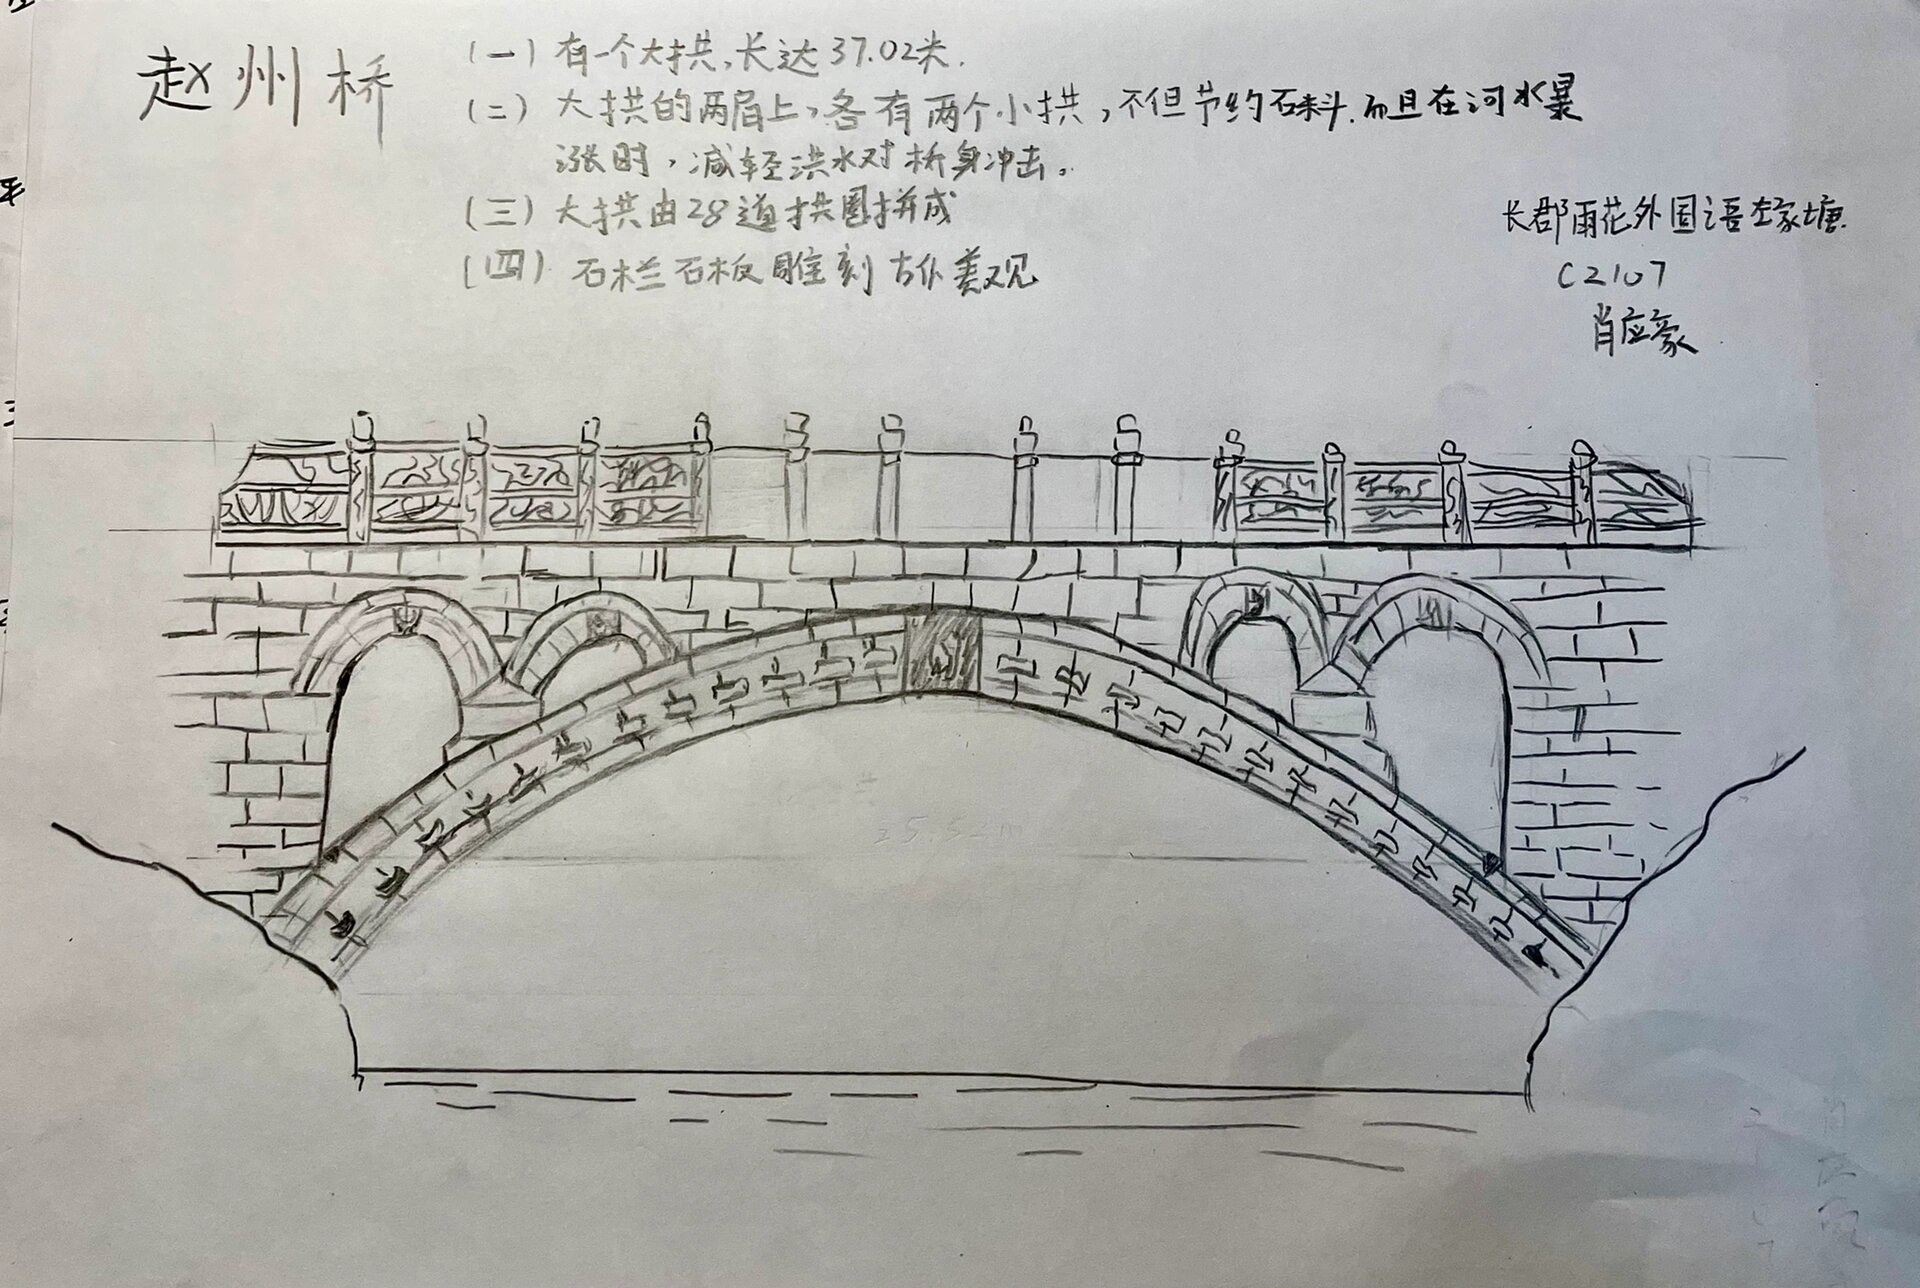 赵州桥
(一) 有一个大拱,长达37.02米.
(二) 大拱的两肩上,各有两个小拱,不但节约石料.而且在河水暴
涨时,减轻洪水对桥身冲击。
(三) 大拱由28道拱圈拼成
(四) 石栏石板雕刻古朴美观
长郡雨花外国语左家塘.
C2107
肖应豪
25.52m